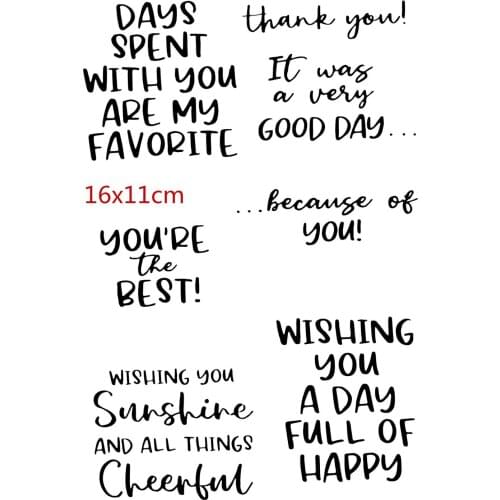 DAYS
SPENT
WITH YOU
ARE MY
FAVORITE
thank you!
It was
a very
GOOD DAY...
16x11cm
...because of
YOU!
YOU'RE
the
BEST!
WISHING YOU
Sunshine
AND ALL THINGS
Cheerful
WISHING
YOU
A DAY
FULL OF
HAPPY